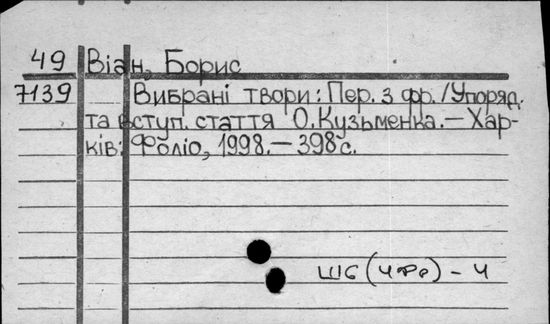 49 Віан, Борис
7139 Вибрані твори: Пер. з фр. / Упоряд.
та вступ. стаття О. Кузьменка. – Хар-
ків: Фоліо, 1998. – 398 с.
Ш6 (4Фр) - 4